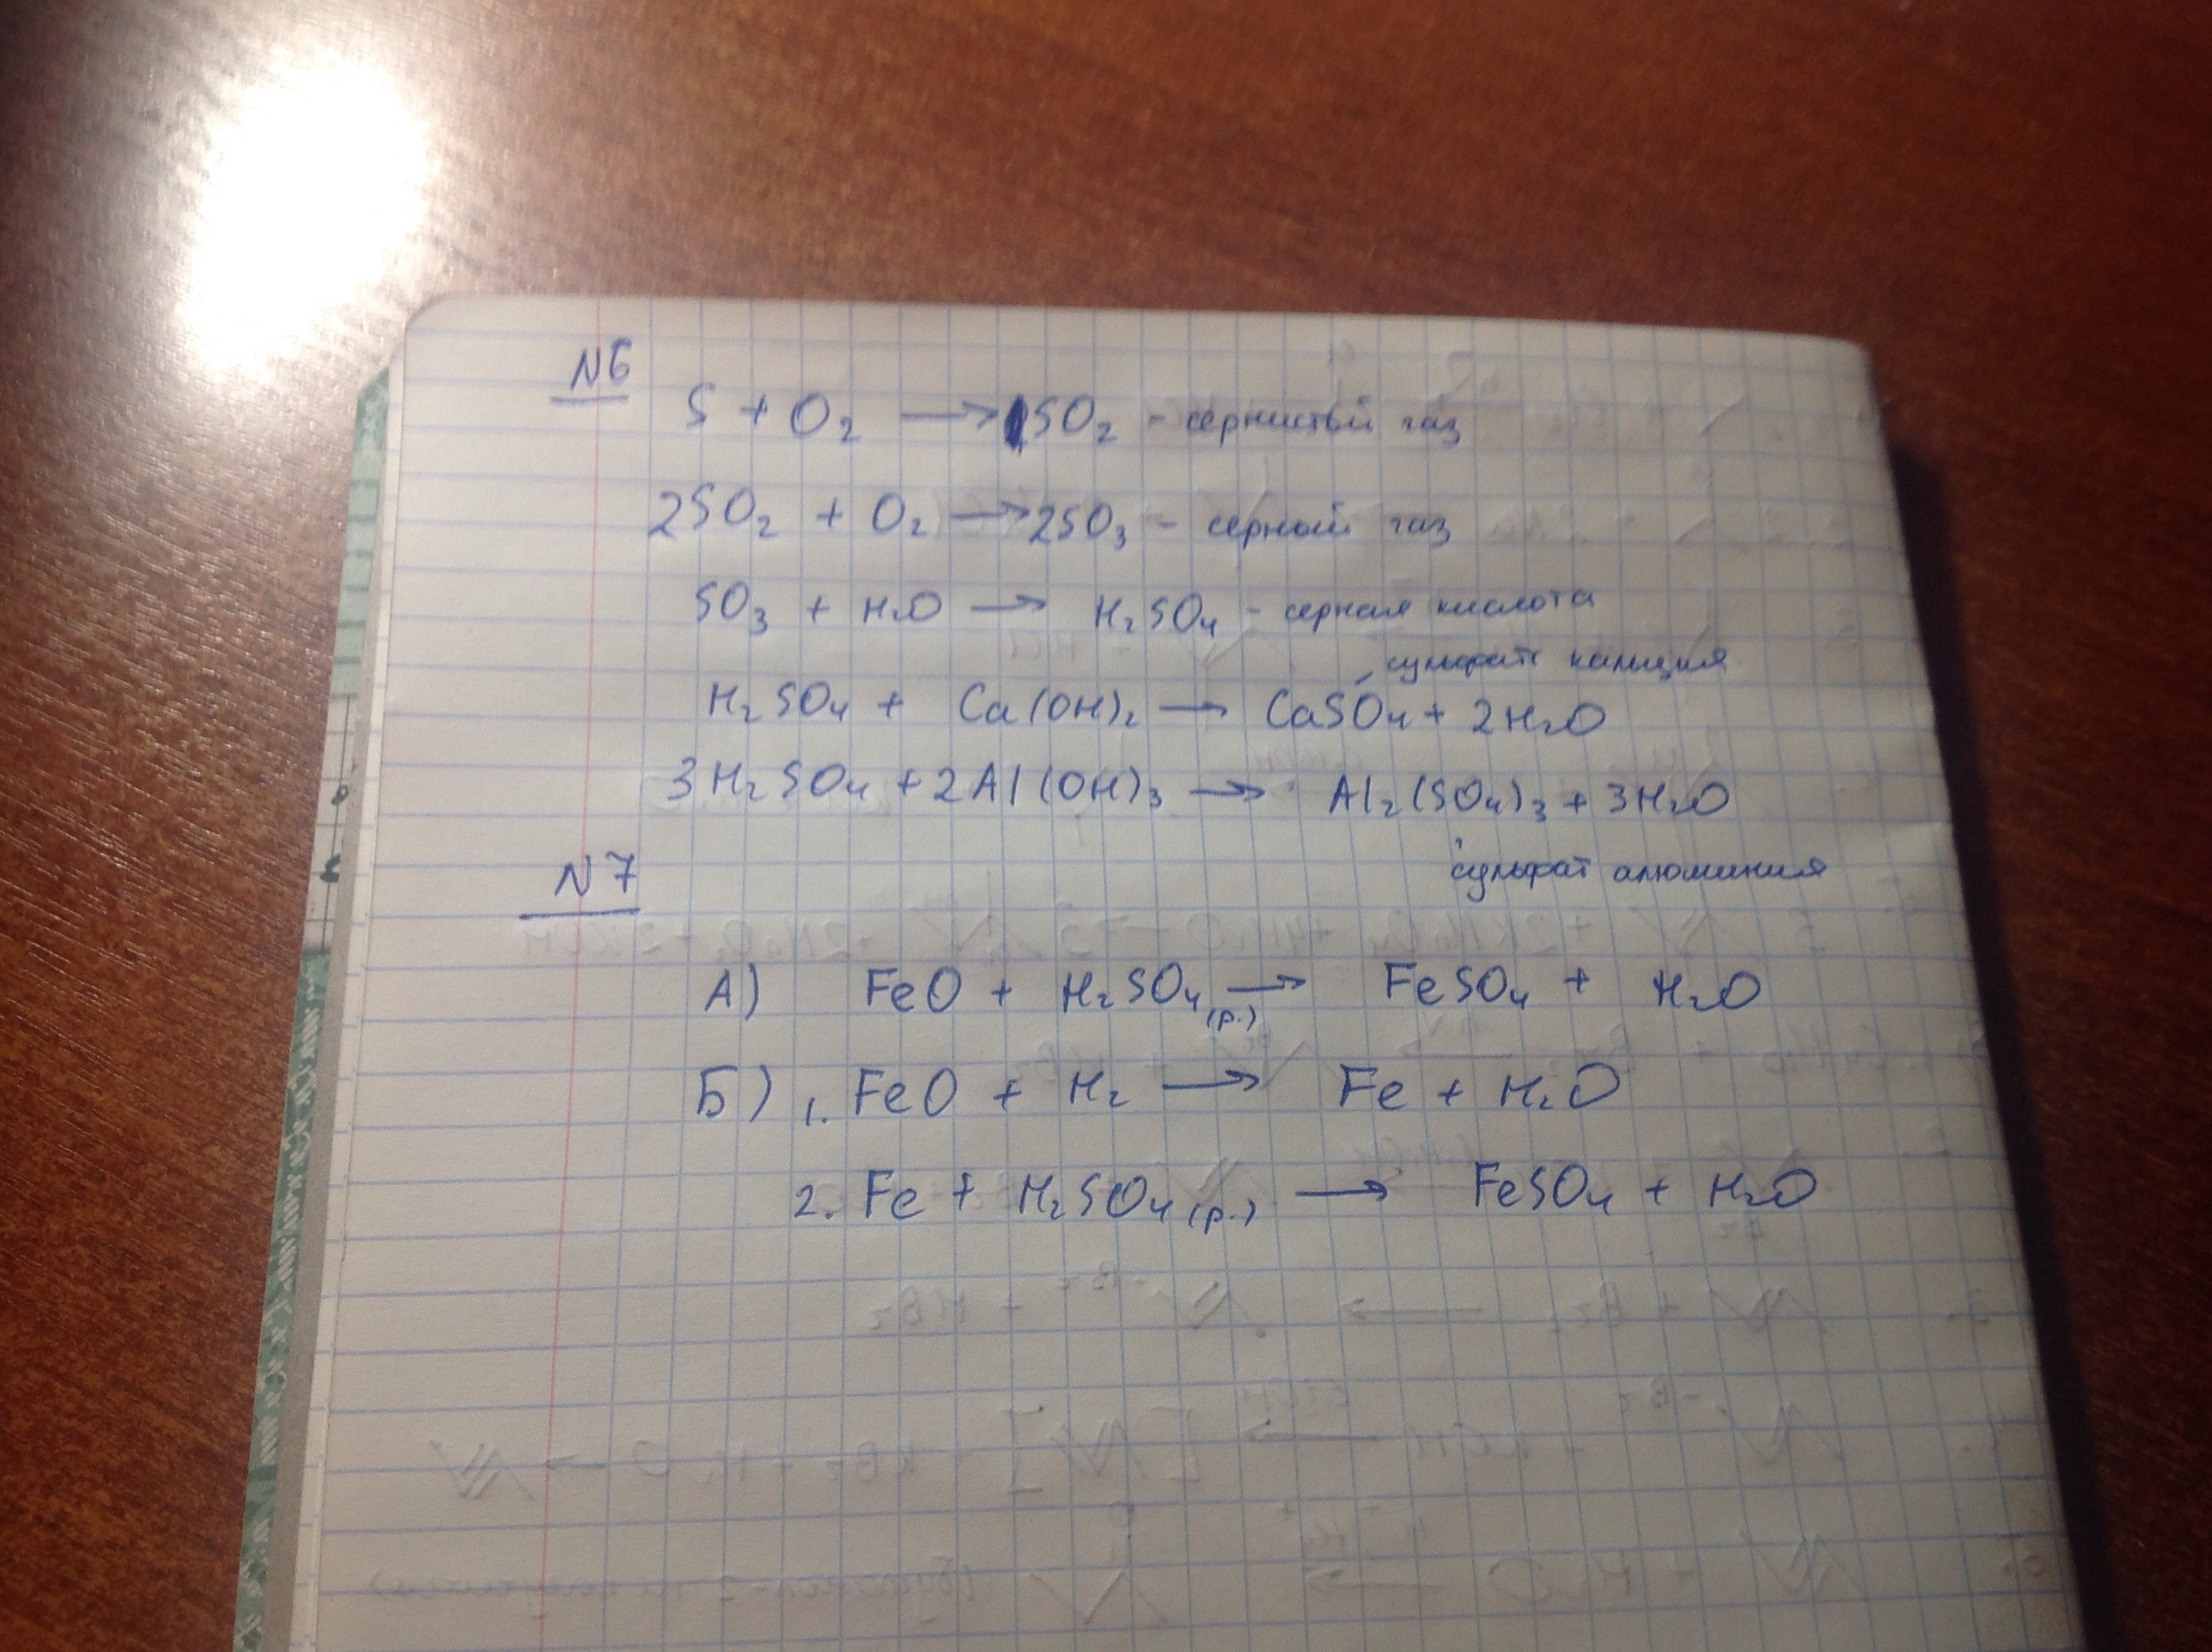 N6
S + O₂ → SO₂ - сернистый газ
2SO₂ + O₂ → 2SO₃ - серный газ
SO₃ + H₂O → H₂SO₄ - серная кислота
сульфат кальция
H₂SO₄ + Ca(OH)₂ → CaSO₄ + 2H₂O
3H₂SO₄ + 2Al(OH)₃ → Al₂(SO₄)₃ + 3H₂O
сульфат алюминия
N7
А) FeO + H₂SO₄(р.) → FeSO₄ + H₂O
Б) 1. FeO + H₂ → Fe + H₂O
2. Fe + H₂SO₄(р.) → FeSO₄ + H₂O